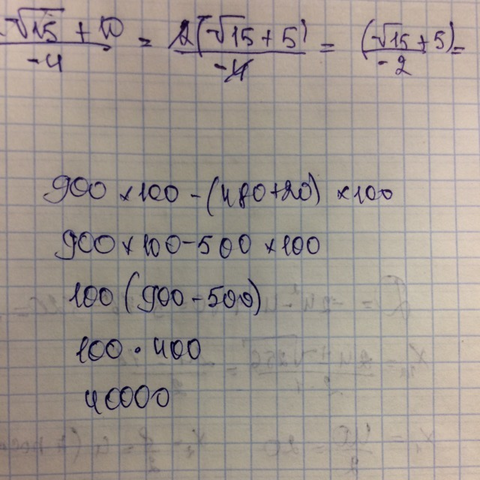 √15 + 10 / -4 = 2(√15 + 5) / -4 = (√15 + 5) / -2 =
900 × 100 - (480 + 20) × 100
900 × 100 - 500 × 100
100 (900 - 500)
100 · 400
40000